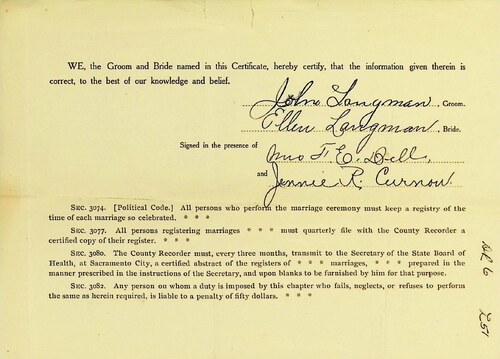 WE, the Groom and Bride named in this Certificate, hereby certify, that the information given therein is
correct, to the best of our knowledge and belief.
John Langman, Groom.
Ellen Langman, Bride.
Signed in the presence of
Mrs F. E. Dell,
and Jennie R. Curnow.
SEC. 3074. [Political Code.] All persons who perform the marriage ceremony must keep a registry of the
time of each marriage so celebrated. * * *
SEC. 3077. All persons registering marriages * * * must quarterly file with the County Recorder
a certified copy of their register. * * *
SEC. 3080. The County Recorder must, every three months, transmit to the Secretary of the State Board of
Health, at Sacramento City, a certified abstract of the registers of * * * marriages, * * * prepared in the
manner prescribed in the instructions of the Secretary, and upon blanks to be furnished by him for that purpose.
SEC. 3082. Any person on whom a duty is imposed by this chapter who fails, neglects, or refuses to perform
the same as herein required, is liable to a penalty of fifty dollars. * * *
251